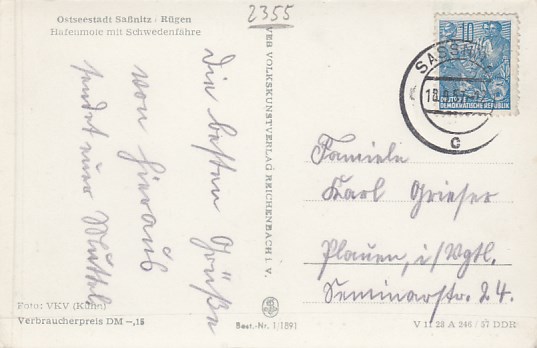 Ostseestadt Saßnitz · Rügen
Hafenmole mit Schwedenfähre
2355
Die besten Grüße
von hieraus
sendet eure Muttel
VEB VOLKSKUNSTVERLAG REICHENBACH I. V.
10
DEUTSCHE
DEMOKRATISCHE REPUBLIK
SASSNITZ
c
Familie
Karl Grieser
Plauen, i/Vgtl.
Seminarstr. 24.
Foto: VKV (Kühn)
Verbraucherpreis DM –,15
Best.-Nr. 1/1891
V 11 28 A 246 / 57 DDR